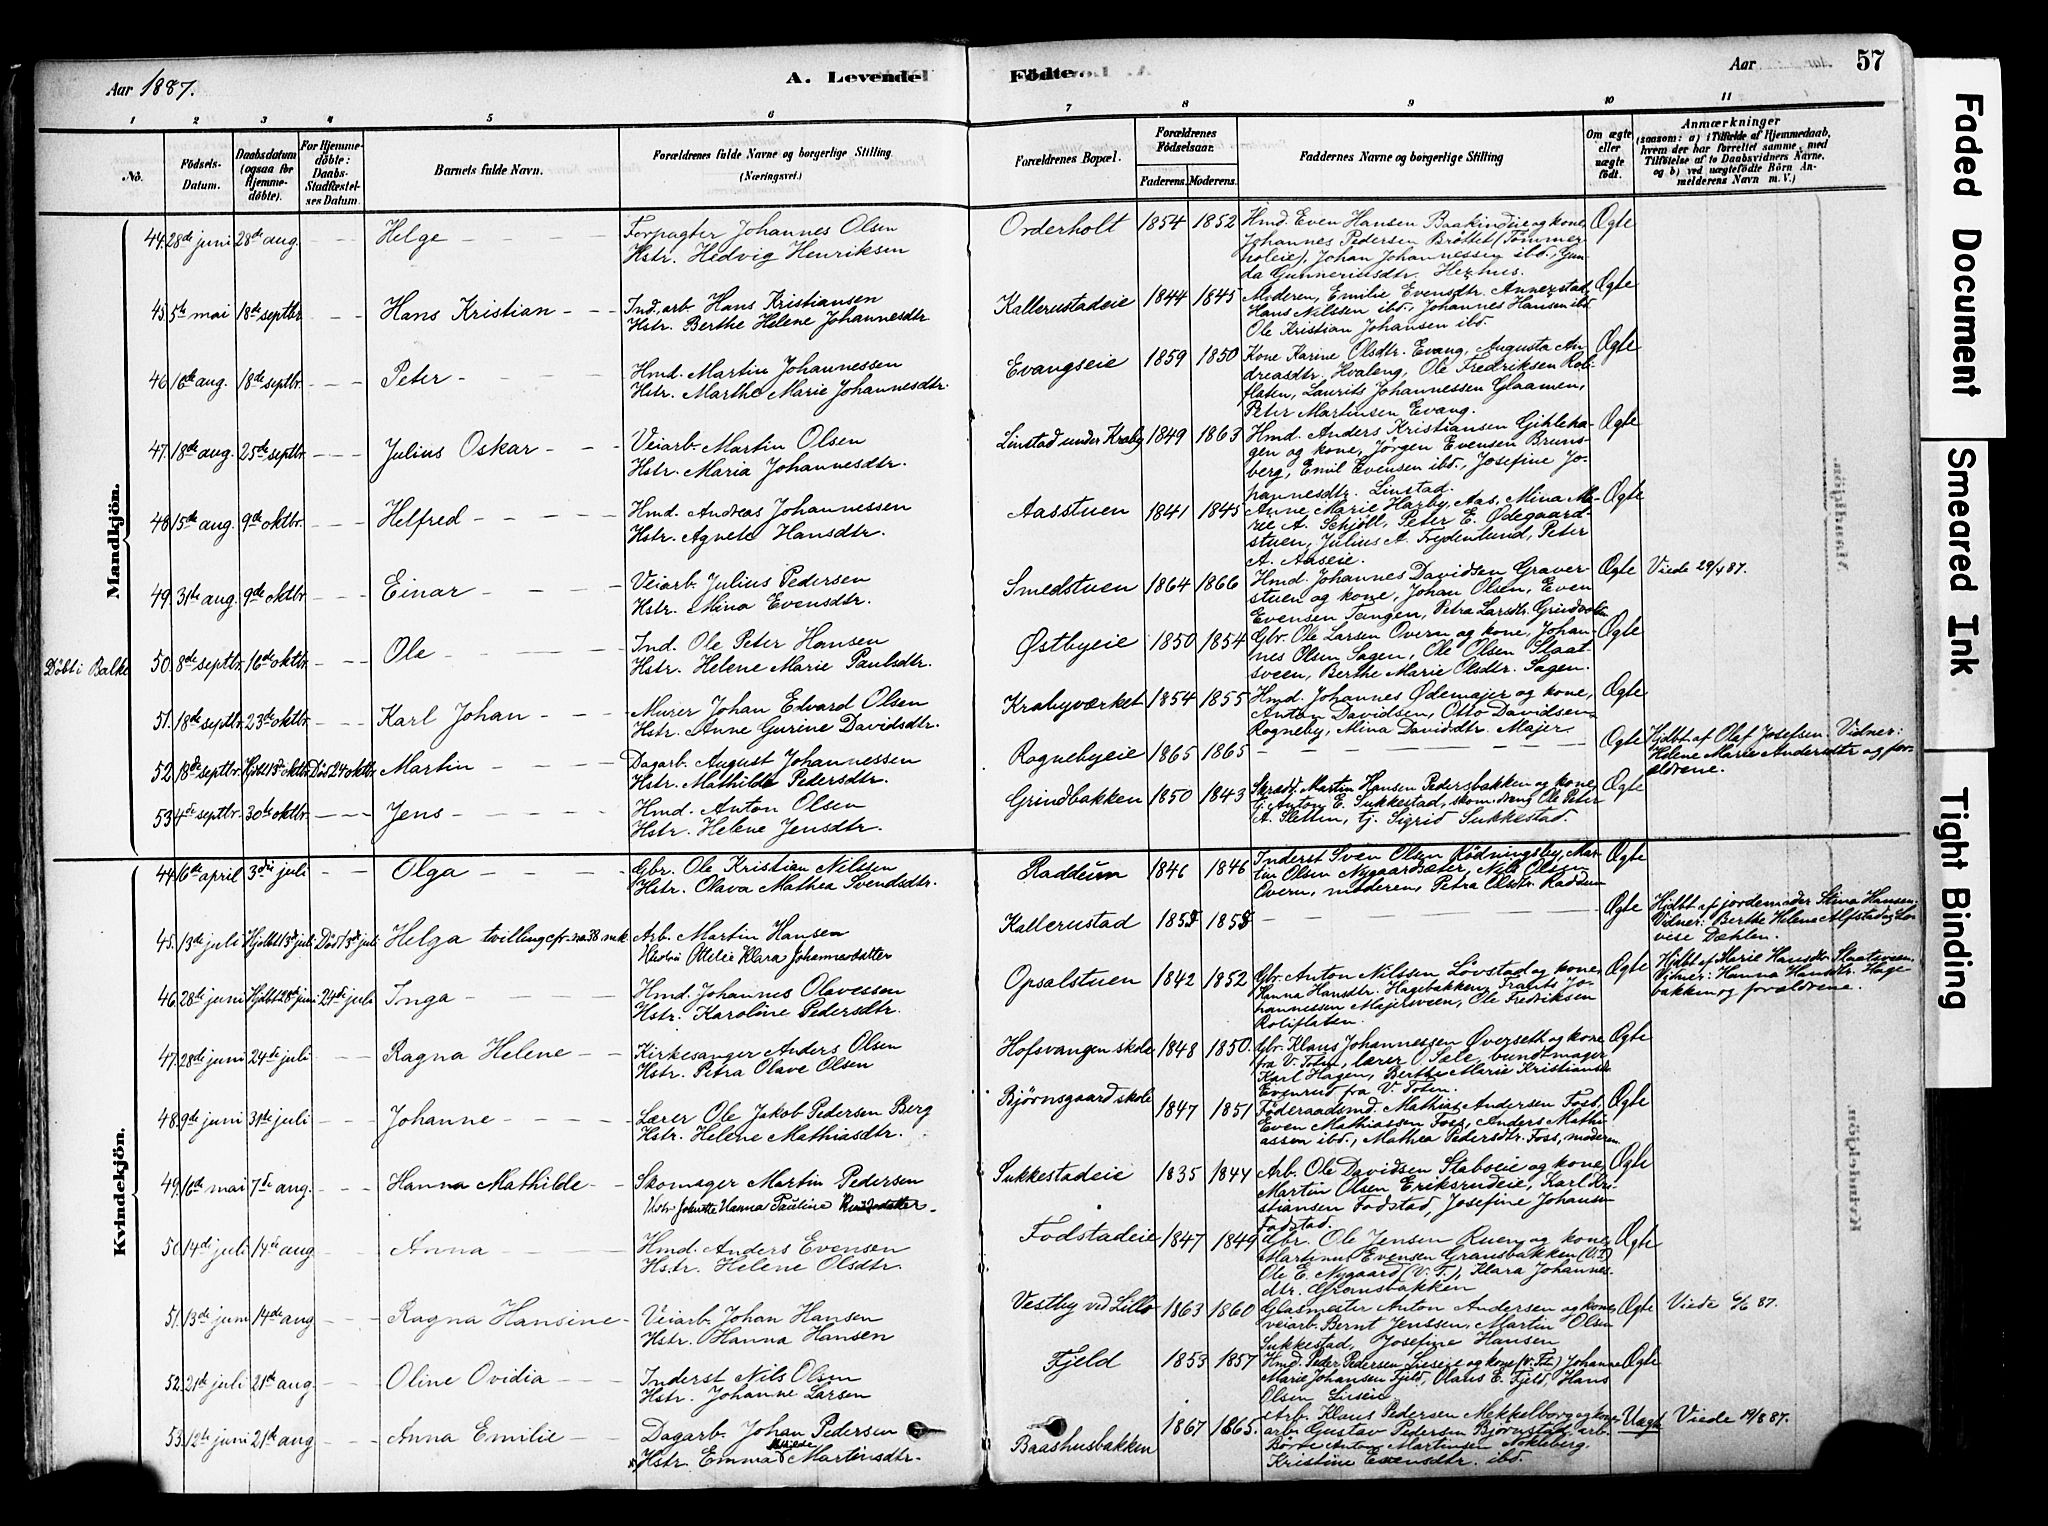 Aar 1887.
A. Levendel
Fødte
Aar
57
1 2 3 4 5 6 7 8 9 10 11
No.
Fødsels-Datum.
Daabsdatum (ogsaa for Hjemmedøbte).
For Hjemmedøbte: Daabs-Stadfæstelses Datum.
Barnets fulde Navn.
Forældrenes fulde Navne og borgerlige Stilling (Næringsvei.)
Forældrenes Bopæl.
Forældrenes Fødselsaar.
Faderens. Moderens.
Faddernes Navne og borgerlige Stilling
Om ægte eller uægte født.
Anmærkninger
(saasom: a) i Tilfælde af Hjemmedaab, hvem der har forrettet samme, med Tilføielse af to Daabsvidners Navne, og b) ved uægtefødte Børn Anmelderens Navn m. V.)
Mandkjøn.
44. 28de juni 28de aug. Helge Forpagter Johannes Olsen Orderholt 1854 1852 Hmd. Even Hansen Baakindeie og kone, Ægte
Hstr. Hedvig Henriksen Johannes Pedersen Brøttet (Tømmerholeie), Johan Johannessen ibd., Gunda Gunneriusdtr. Hexhus.
45. 5te mai 18de septbr. Hans Kristian Ind. arb. Hans Kristiansen Kallerustadeie 1844 1845 Moderen, Emilie Evensdtr. Annerstad, Ægte
Hstr. Berthe Helene Johannesdtr Hans Nilssen ibd., Johannes Hansen ibd.
Ole Kristian Johansen ibd.
46. 16de aug. 18de septbr. Peter Hmd. Martin Johannessen Evangseie 1859 1850 Kone Karine Olsdtr. Evang, Augusta Andreasdtr. Hvaleng, Ole Fredriksen Roliflaten, Laurits Johannessen Glaamen, Ægte
Hstr. Marthe Marie Johannesdtr. Peter Martinsen Evang.
47. 18de aug. 25de septbr. Julius Oskar Veiarb. Martin Olsen Linstad under Kraby 1849 1863 Hmd. Anders Kristiansen Gihlehagen og kone, Jørgen Evensen Brunsberg, Emil Evensen ibd., Josefine Johannesdtr. Linstad. Ægte
Hstr. Maria Johannesdtr.
48. 15de aug. 9de oktbr. Helfred Hmd. Andreas Johannessen Aasstuen 1841 1845 Anne Marie Harby, Aas, Mina Marie A. Schjøll, Peter E. Ødegaardstuen, Julius A. Frydenlund, Peter A. Aaseie. Ægte
Hstr. Agnete Hansdtr.
49. 31te aug. 9de oktbr. Einar Veiarb. Julius Pedersen Smedstuen 1864 1866 Hmd. Johannes Davidsen Graverstuen og kone, Johan Olsen, Even Evensen Tangen, Petra Larsdtr. Ægte Viede 29/4 87.
Hstr. Mina Evensdtr.
Døbt i Balke 50. 8de septbr. 16de oktbr. Ole Ind. Ole Peter Hansen Østbyeie 1850 1854 Gbr. Ole Larsen Overn og kone, Johannes Olsen Sagen, Ole Olsen Slaatsveen, Berthe Marie Olsdtr. Sagen. Ægte
Hstr. Helene Marie Paulsdtr.
51. 18de septbr. 23de oktbr. Karl Johan Murer Johan Edvard Olsen Krabyværket 1854 1855 Hmd. Johannes Ødemajer og kone, Anton Davidsen, Otto Davidsen Rogneby, Mina Davidsdtr. Majer. Ægte
Hstr. Anne Gurine Davidsdtr.
52. 18de septbr. Død 24 oktbr. Martin Dagarb. August Johannessen Rognebyeie 1865 1865 Ægte Hjdbt. af Olaf Josefsen. Vidner: Helene Marie Andersdtr og forældrene.
Hstr. Mathilde Petersdtr.
53. 4de septbr. 30te oktbr. Jens Hmd. Anton Olsen Grindbakken 1850 1843 Skrædd. Martin Hansen Pedersbakken og kone, tj. Anton E. Sukkestad, skom. dreng Ole Peter A. Sletten, tj. Sigrid Sukkestad. Ægte
Hstr. Helene Jensdtr.
Kvindekjøn.
44. 16de april 3die juli Olga Gbr. Ole Kristian Nilssen Raddum 1846 1846 Inderst Sven Olsen Rødningsby, Martin Olsen Nygaardsæter, Nils Olsen Overn, moderen, Petra Olsdtr. Raddum Ægte
Hstr. Olava Mathea Svendsdtr.
45. 13de juli Hjdbt 13de juli Død 13de juli Helga tvilling Arb. Martin Hansen Kallerustad Ægte Hjdbt. af jordemoder Stina Hansen. Vidner: Berthe Helene Alfstad og Lovise Dæhlen.
Hustru Otelie Klara Johannesdatter
46. 28de juni Hjdbt 28de juni 24de juli Inga Hmd. Johannes Olavessen Opsalstuen 1842 1852 Gbr. Anton Nilssen Løvstad og kone, Hanna Hansdtr. Hagebakken, Frants Johannessen Majersveen, Ole Fredriksen Roliflaten. Ægte Hjdbt af Marie Hansdtr. Slaatsveen. Vidner: Hanna Hansdtr. Hagebakken og forældrene.
Hstr. Karoline Pedersdtr.
47. 28de juni 24de juli Ragna Helene Kirkesanger Anders Olsen Hofsvangen skole 1848 1850. Gbr. Klaus Johannessen Øverseth og kone fra V. Toten, lærer O. Sæle, bundtmager Karl Hagen, Berthe Marie Kristiansdtr Evenrud fra V. Toten. Ægte
Hstr. Petra Olave Olsen
48. 9de juni 31te juli Johanne Lærer Ole Jakob Pedersen Berg Bjørnsgaard skole 1847 1851 Føderaadsmd. Mathias Andersen Foss, Even Mathiassen Foss, Anders Mathiassen ibd., Mathea Pedersdtr. Foss, moderen Ægte
Hstr. Helene Mathiasdtr.
49. 16de mai 7de aug. Hanna Mathilde Skomager Martin Pedersen Sukkestadeie 1835 1844 Arb. Ole Davidsen Stabseie og kone, Martin Olsen Eriksrudeie, Karl Kristiansen Fodstad, Josefine Johansen Fodstad. Ægte
Hstr Johnette Hanna Pauline
50. 14de juli 14de aug Anna Hmd. Anders Evensen Fodstadeie 1847 1849 Gbr. Ole Jensen Ruen og kone, Martinus Evensen Gransbakken (V.T.) Ole E. Nygaard (V.T.), Klara Johannesdtr. Gransbakken Ægte
Hstr. Helene Olsdtr.
51. 13de juni 14de aug Ragna Hansine Veiarb. Johan Hansen Vestby ved Lillo 1863 1860 Glasmester Anton Andersen og kone, veiarb. Bernt Jenssen, Martin Olsen Sukkestad, Josefine Hansen Ægte Viede 6/6 87.
Hstr. Hanna Hansen
52. 21de juli 21de aug. Oline Ovidia Inderst Nils Olsen Fjeld 1853 1857 Hmd. Peder Pedersen Lieseie og kone (V. Tot.) Johanne Marie Johansen Fjeld, Olaus E. Fjeld, Hans Olsen Lieseie Ægte
Hstr. Johanne Larsen
53. 12te juni 21de aug Anna Emilie Dagarb. Johan Pedersen Baashusbakken 1867 1865. Arb. Klaus Pedersen Mekkelborg og kone, arb. Gustav Pedersen Bjørnstad, arb. Børre Anton Martinsen Nøkleberg, Kristine Evensdtr. ibd. Uægte Viede 19/8 87.
Hstr. Emma Martinsdtr.
Faded Document
Smeared Ink
Tight Binding